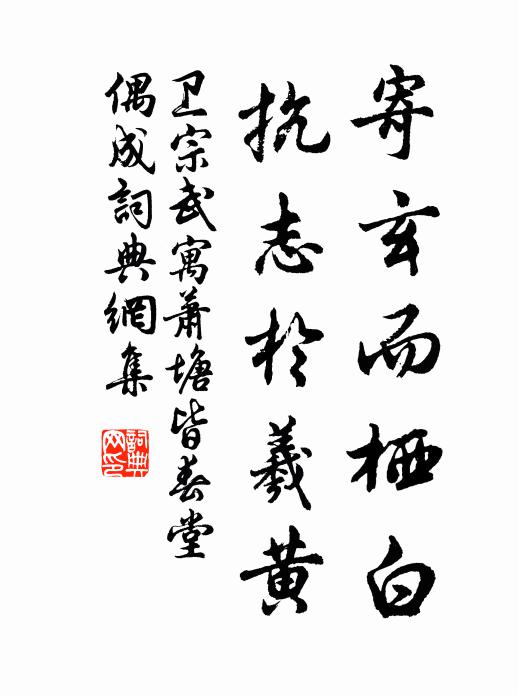 寄玄而栖白
抗志於羲黄
卫宗武寓萧塘皆春堂
偶成詞典網集
詞典网印